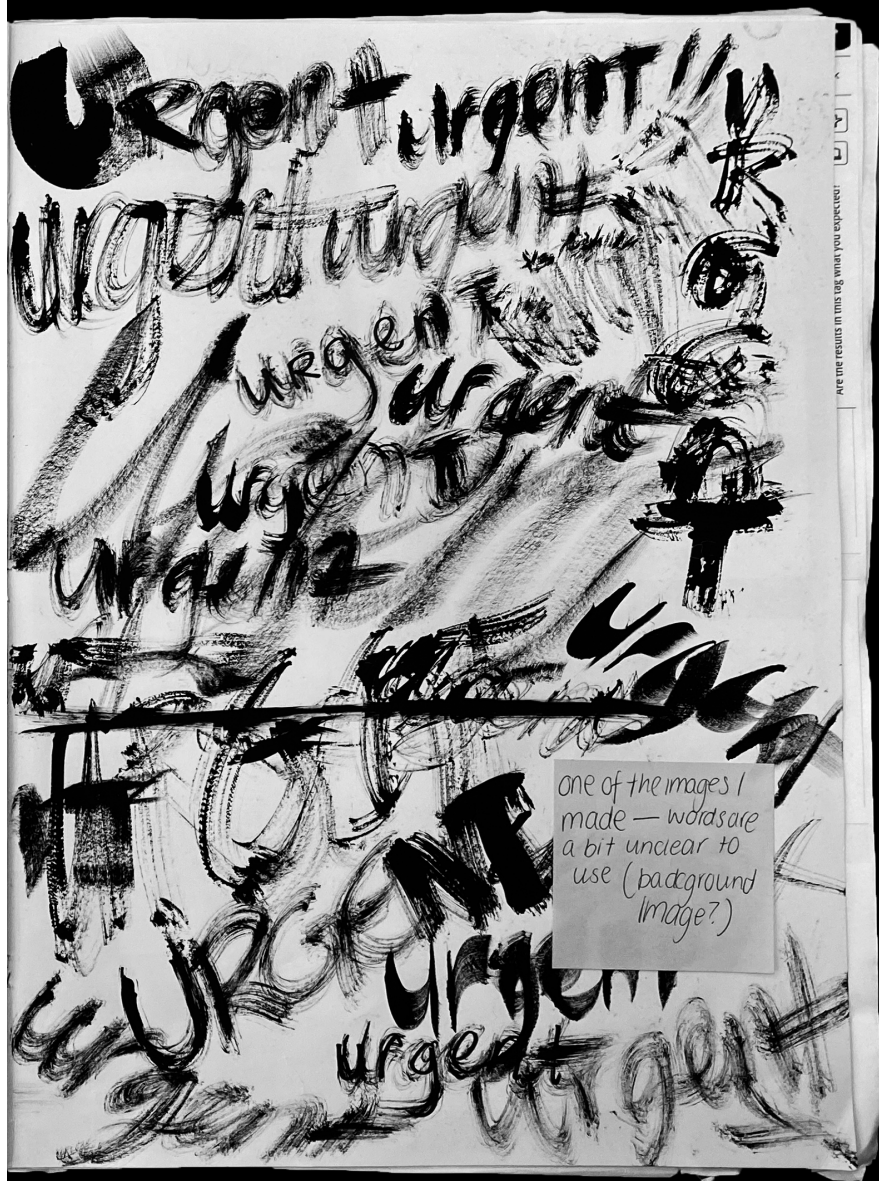 urgent urgent
urgent urgent
urgent
urgent
urgent
urgent
urgent
URGENT
urgent
urgent
urgent
urgent
one of the images I
made — words are
a bit unclear to
use (background
Image?)
Are the results in this tag what you expected?